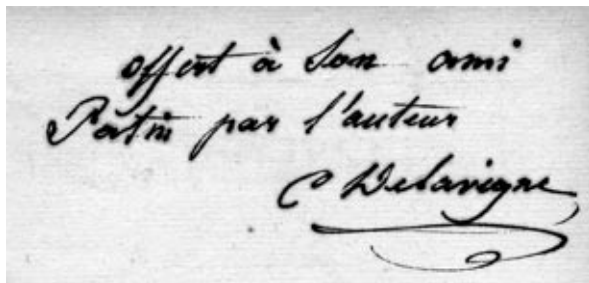 offert à son ami
Patin par l'auteur
C Delavigne